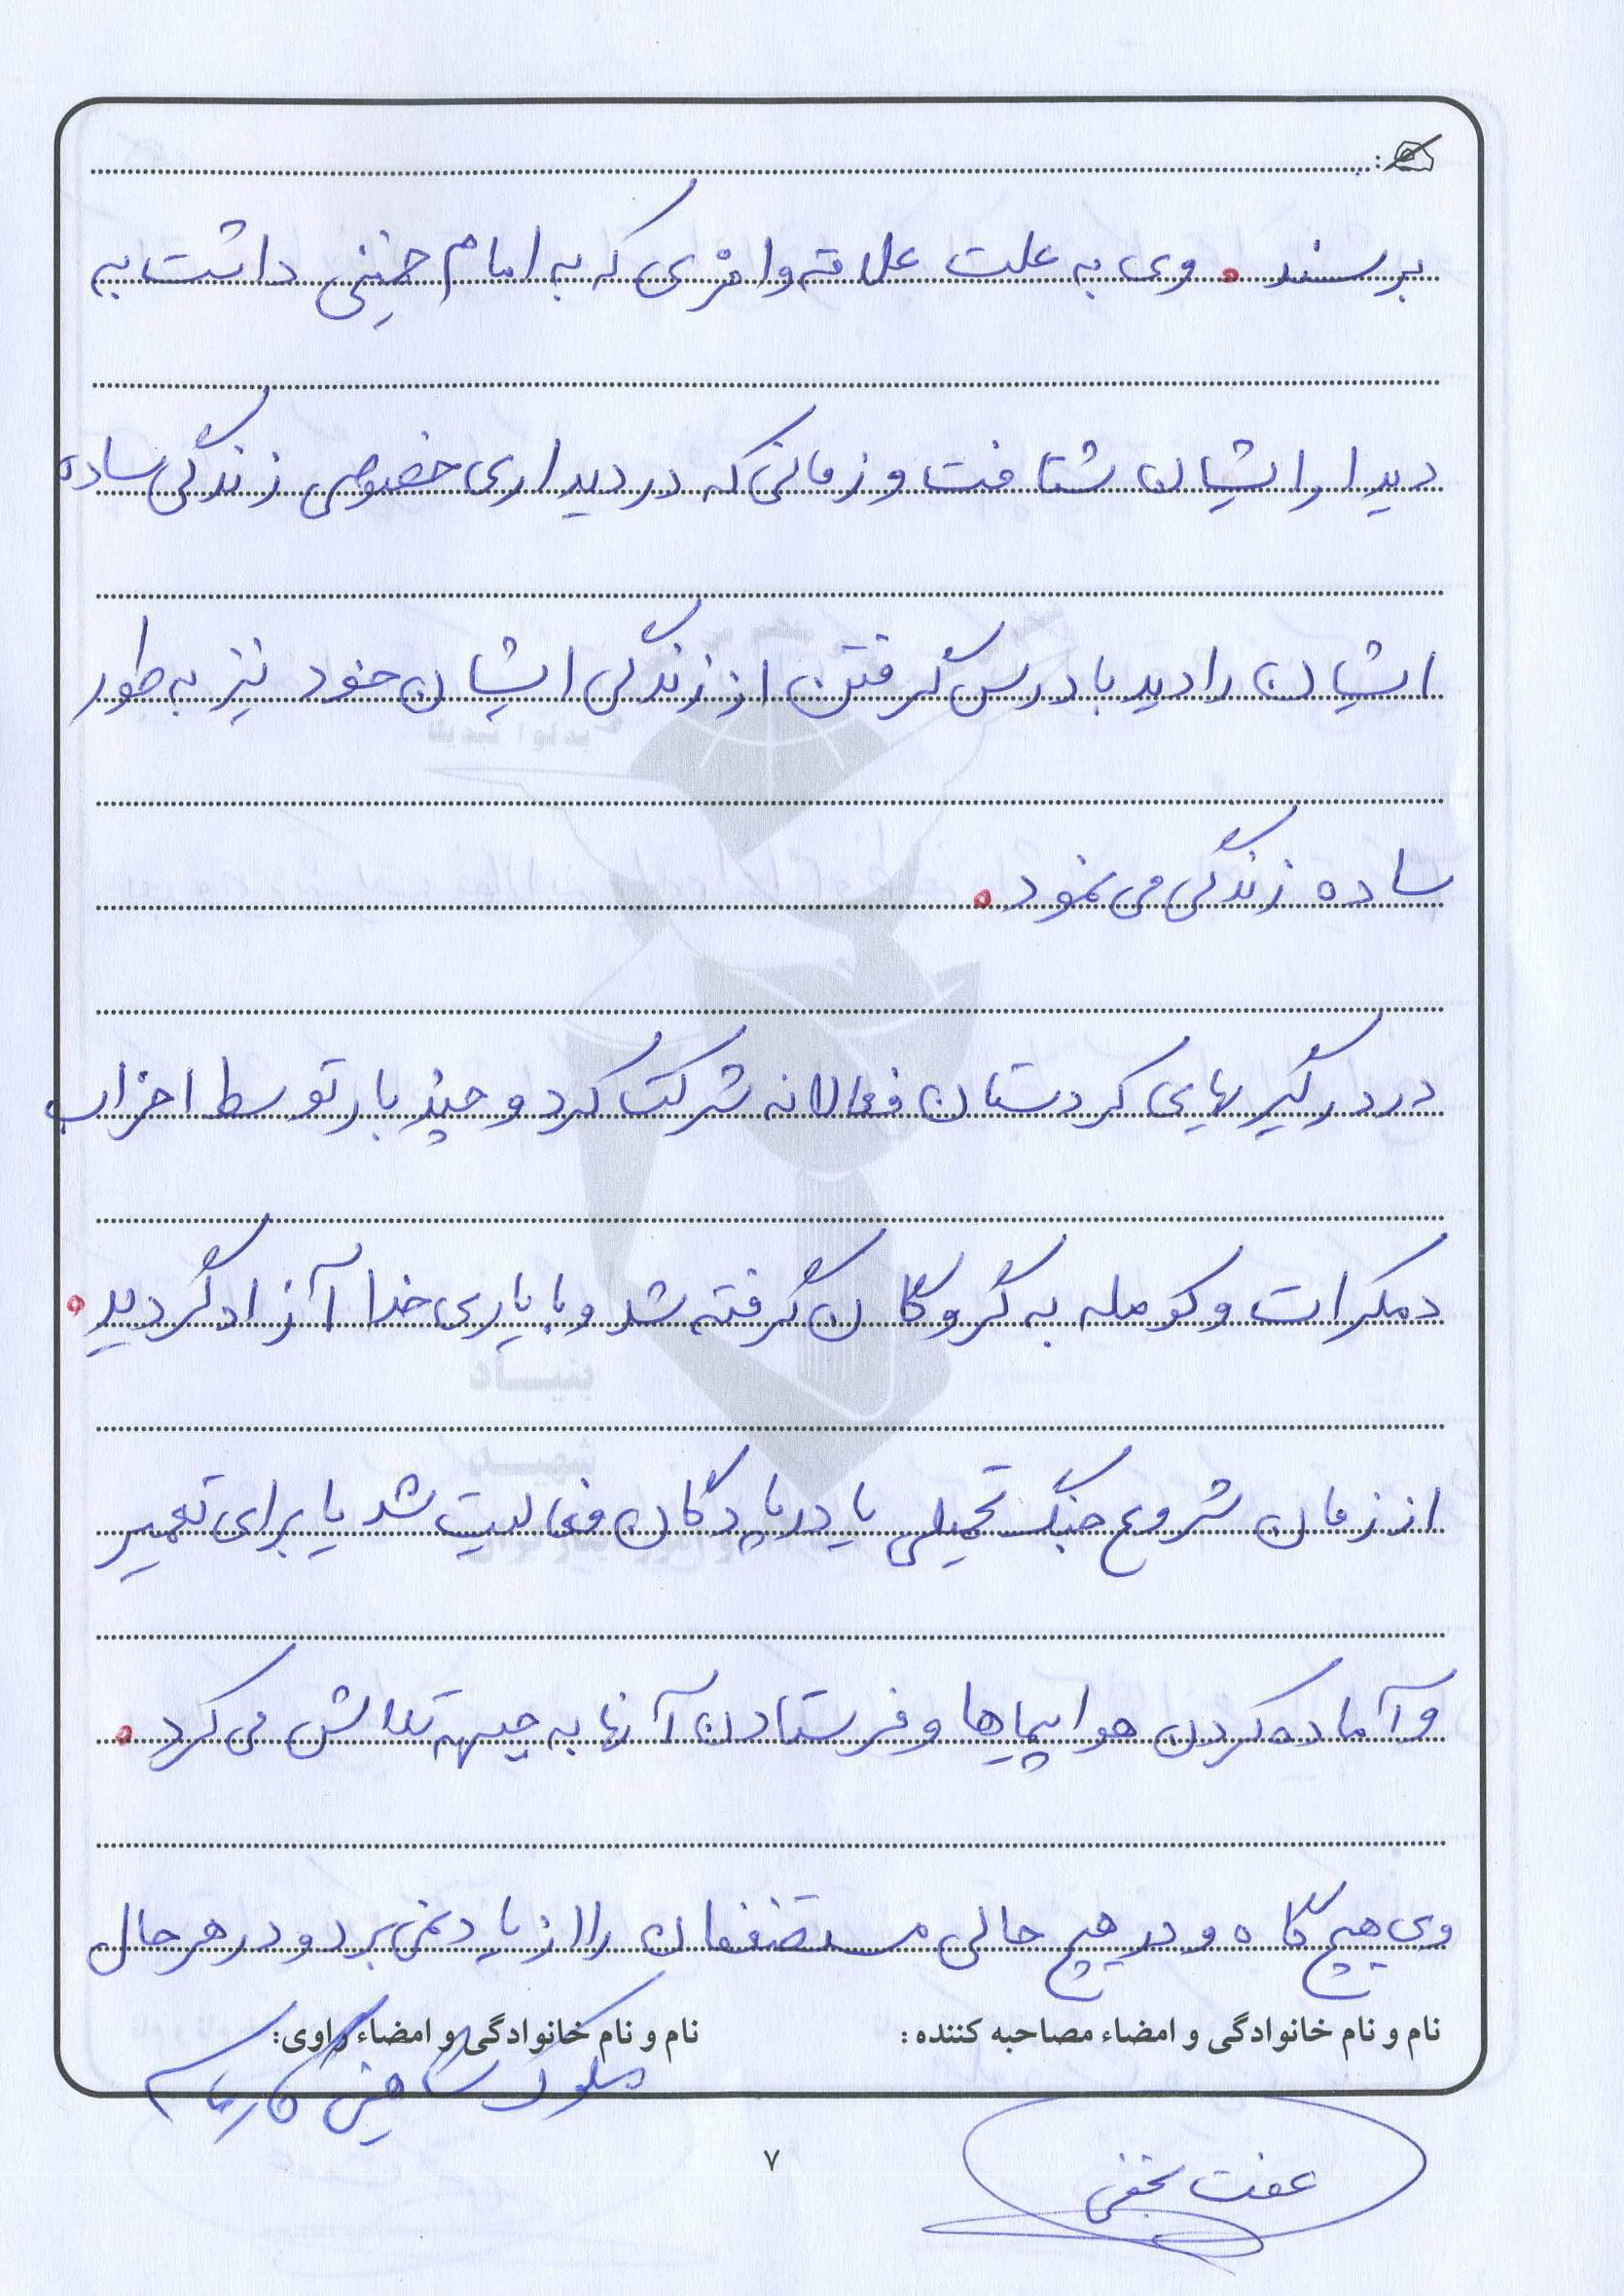 برسند. وی به علت علاقه وافری که به امام خمینی داشت به
دیدار ایشان شتافت و زمانی که در دیداری خصوصی زندگی ساده
ایشان را دید با درس گرفتن از زندگی ایشان خود نیز به طور
ساده زندگی می نمود.
در درگیریهای کردستان فعالانه شرکت کرد و چند بار توسط احزاب
دمکرات و کومله به گروگان گرفته شد و با یاری خدا آزاد گردید.
از زمان شروع جنگ تحمیلی یا در پادگان فعالیت شد یا برای تعمیر
و آماده کردن هواپیماها و فرستادن آنها به جبهه تلاش می کرد.
وی هیچ گاه و در هیچ حالی مستضعفان را از یاد نمی برد و در هر حال
نام و نام خانوادگی و امضاء مصاحبه کننده: نام و نام خانوادگی و امضاء راوی:
ملوک شاهین
۷
عفت نجفی
بنیاد
شهید